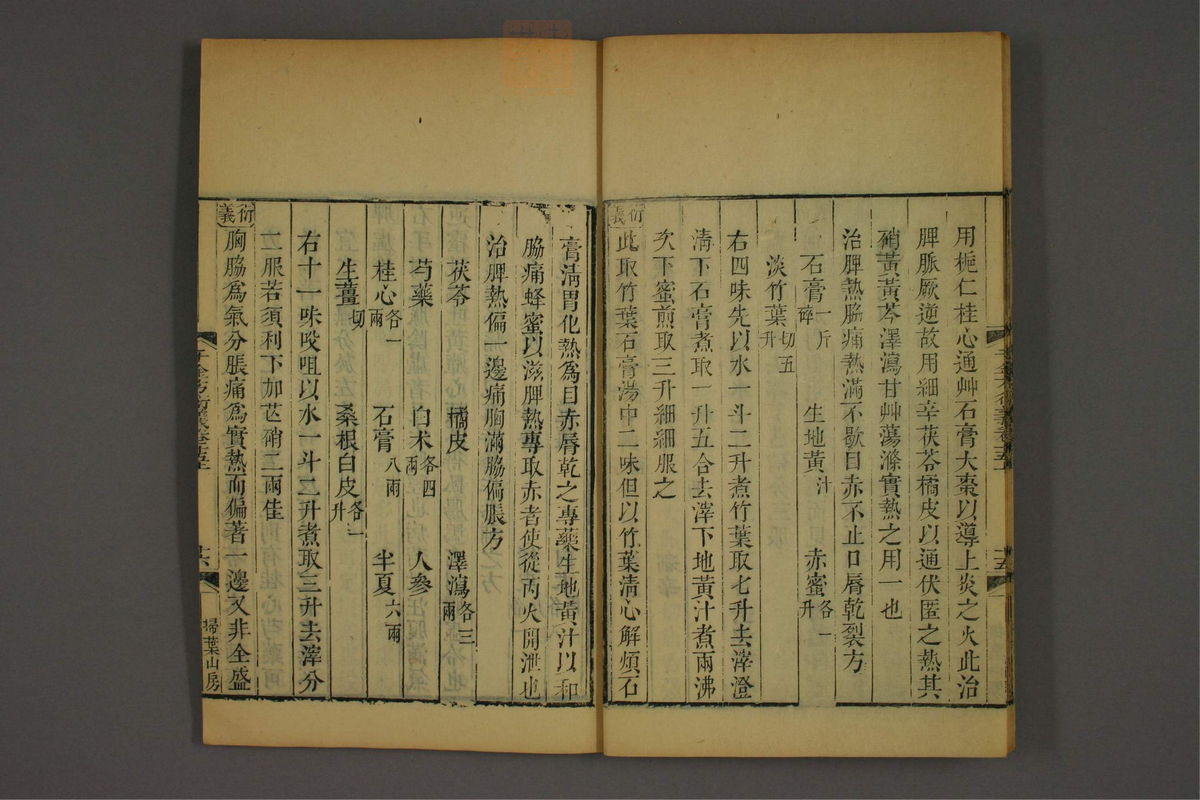 用梔仁桂心通艸石膏大棗以導上炎之火此治
脾脈厥逆故用細辛茯苓橘皮以通伏匿之熱其
硝黃黃芩澤瀉甘艸蕩滌實熱之用一也
治脾熱脇痛熱滿不歇目赤不止口唇乾裂方
石膏一斤碎 生地黃汁 赤蜜各一升
淡竹葉切五升
右四味先以水一斗二升煮竹葉取七升去滓澄
清下石膏煮取一升五合去滓下地黃汁煮兩沸
次下蜜煎取三升細細服之
衍義
此取竹葉石膏湯中二味但以竹葉淸心解煩石
膏淸胃化熱爲目赤唇乾之專藥生地黃汁以和
脇痛蜂蜜以滋脾熱專取赤者使從丙火開泄也
治脾熱偏一邊痛胸滿脇偏脹方
茯苓 橘皮 澤瀉各三兩
芍藥 白朮各四兩 人參
桂心各一兩 石膏八兩 半夏六兩
生薑切 桑根白皮各一升
右十一味㕮咀以水一斗二升煮取三升去滓分
三服若須利下加芒硝二兩佳
衍義
胸脇爲氣分脹痛爲實熱而偏著一邊又非全盛
千金方衍義卷十五上
十五
十六
掃葉山房